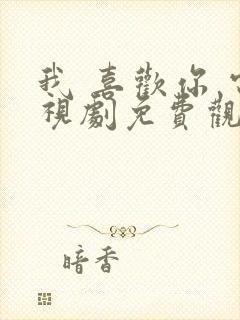 我喜歡你
視劇免費觀
暗香